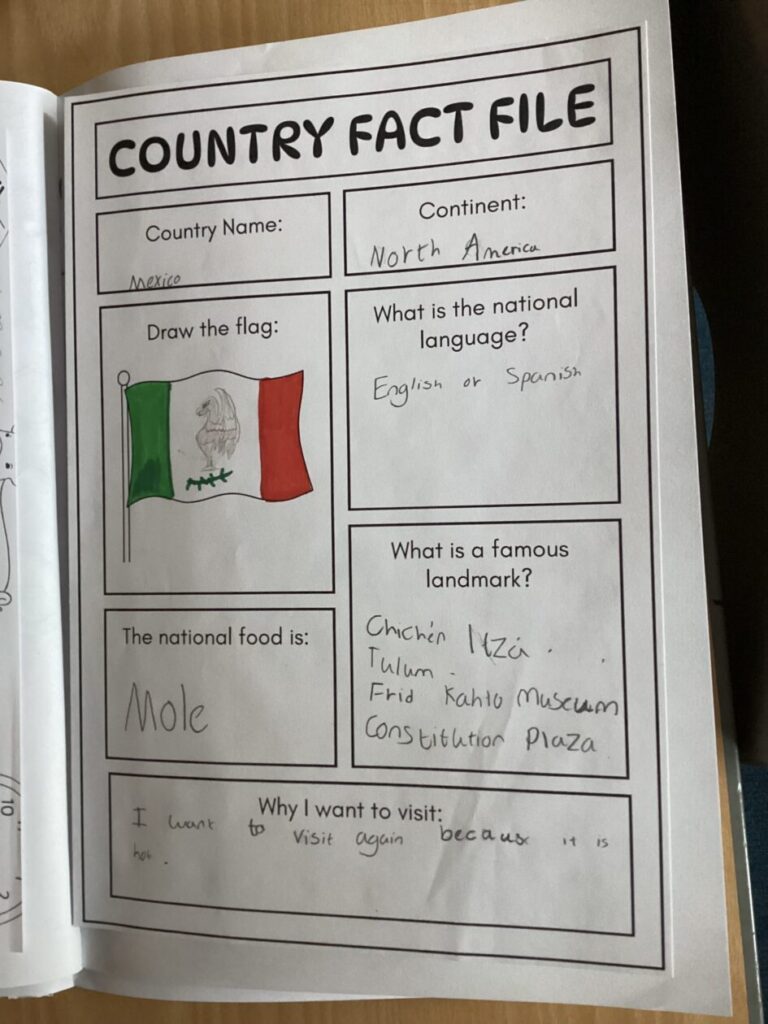 COUNTRY FACT FILE
Country Name:
Mexico
Continent:
North America
Draw the flag:
What is the national
language?
English or Spanish
The national food is:
Mole
What is a famous
landmark?
Chichén Itzá .
Tulum .
Frid Kahlo Museum
Constitution Plaza
Why I want to visit:
I want to visit again becaus it is
hot .
10
2